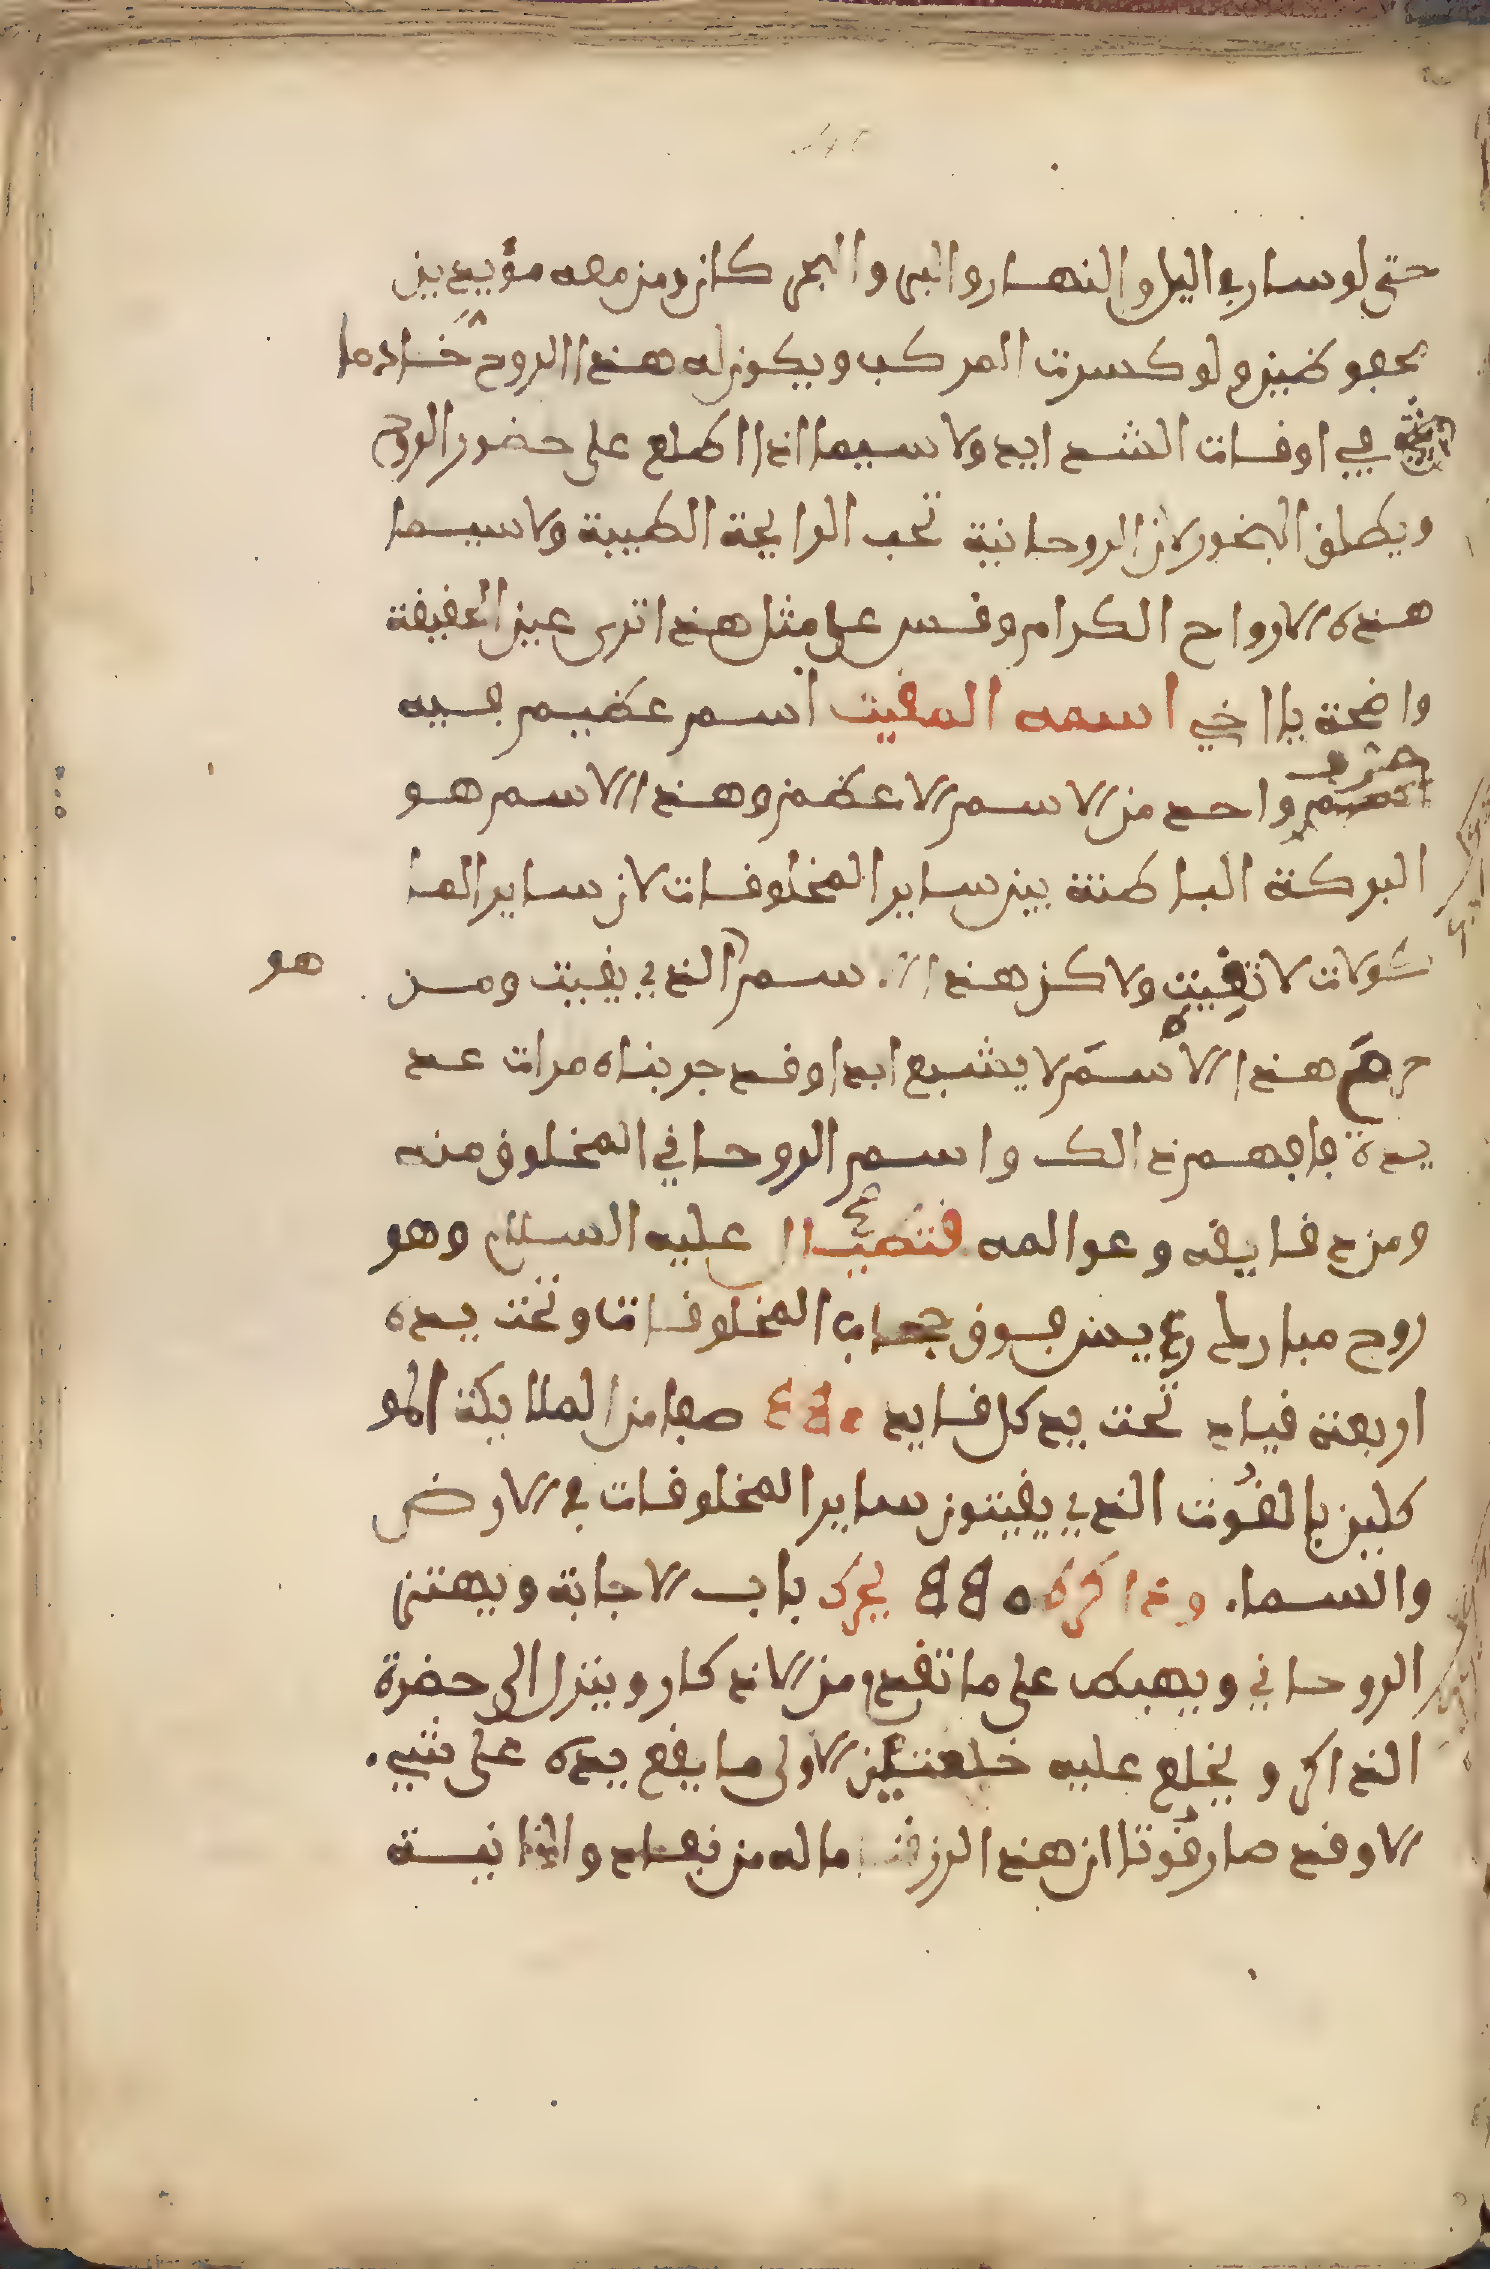 حتى لو سار في اليل والنهار والبر والبحر كان ومن معه مؤيدين
محفوظين ولو كسرت المركب ويكون له هذا الروح خادما
في اوقات الشدايد ولا سيما اذا اطلع على حضور الروح
ويطلق البخور لان الروحانية تحب الرايحة الطيبة ولا سيما
هذه الارواح الكرام وقس على مثل هذا ترى عين الحقيقة
واضحة يا اخي اسمه المقيت اسم عظيم فيه
حرف واحد من الاسم الاعظم وهذا الاسم هو
البركة الباطنة بين ساير المخلوقات لان ساير الما
كولات لا تقيت ولاكن هذا الاسم الذي يقيت ومن هو
هذا الاسم لا يشبع ابدا وقد جربناه مرات عد
يدة فافهم ذالك واسم الروحاني المخلوق منه
ومن دقايقه وعوالمه عليه السلام وهو
روح مبارك يسر فوق حجاب المخلوقات وتحت يده
اربعة قياد تحت يد كل قايد صفا من الملايكة المو
كلين بالقوت الذي يقيتون ساير المخلوقات في الارض
والسما. وذاكره يحرك باب الاجابة ويهتز
الروحاني ويهبط على ما تقدم من الاذكار وينزل الى حضرة
الذاكر ويخلع عليه خلعتين الاولى ما يقع يده على شيء
الا وقد صار قوتا ان هذا لرزقنا ما له من نفاد والثانية